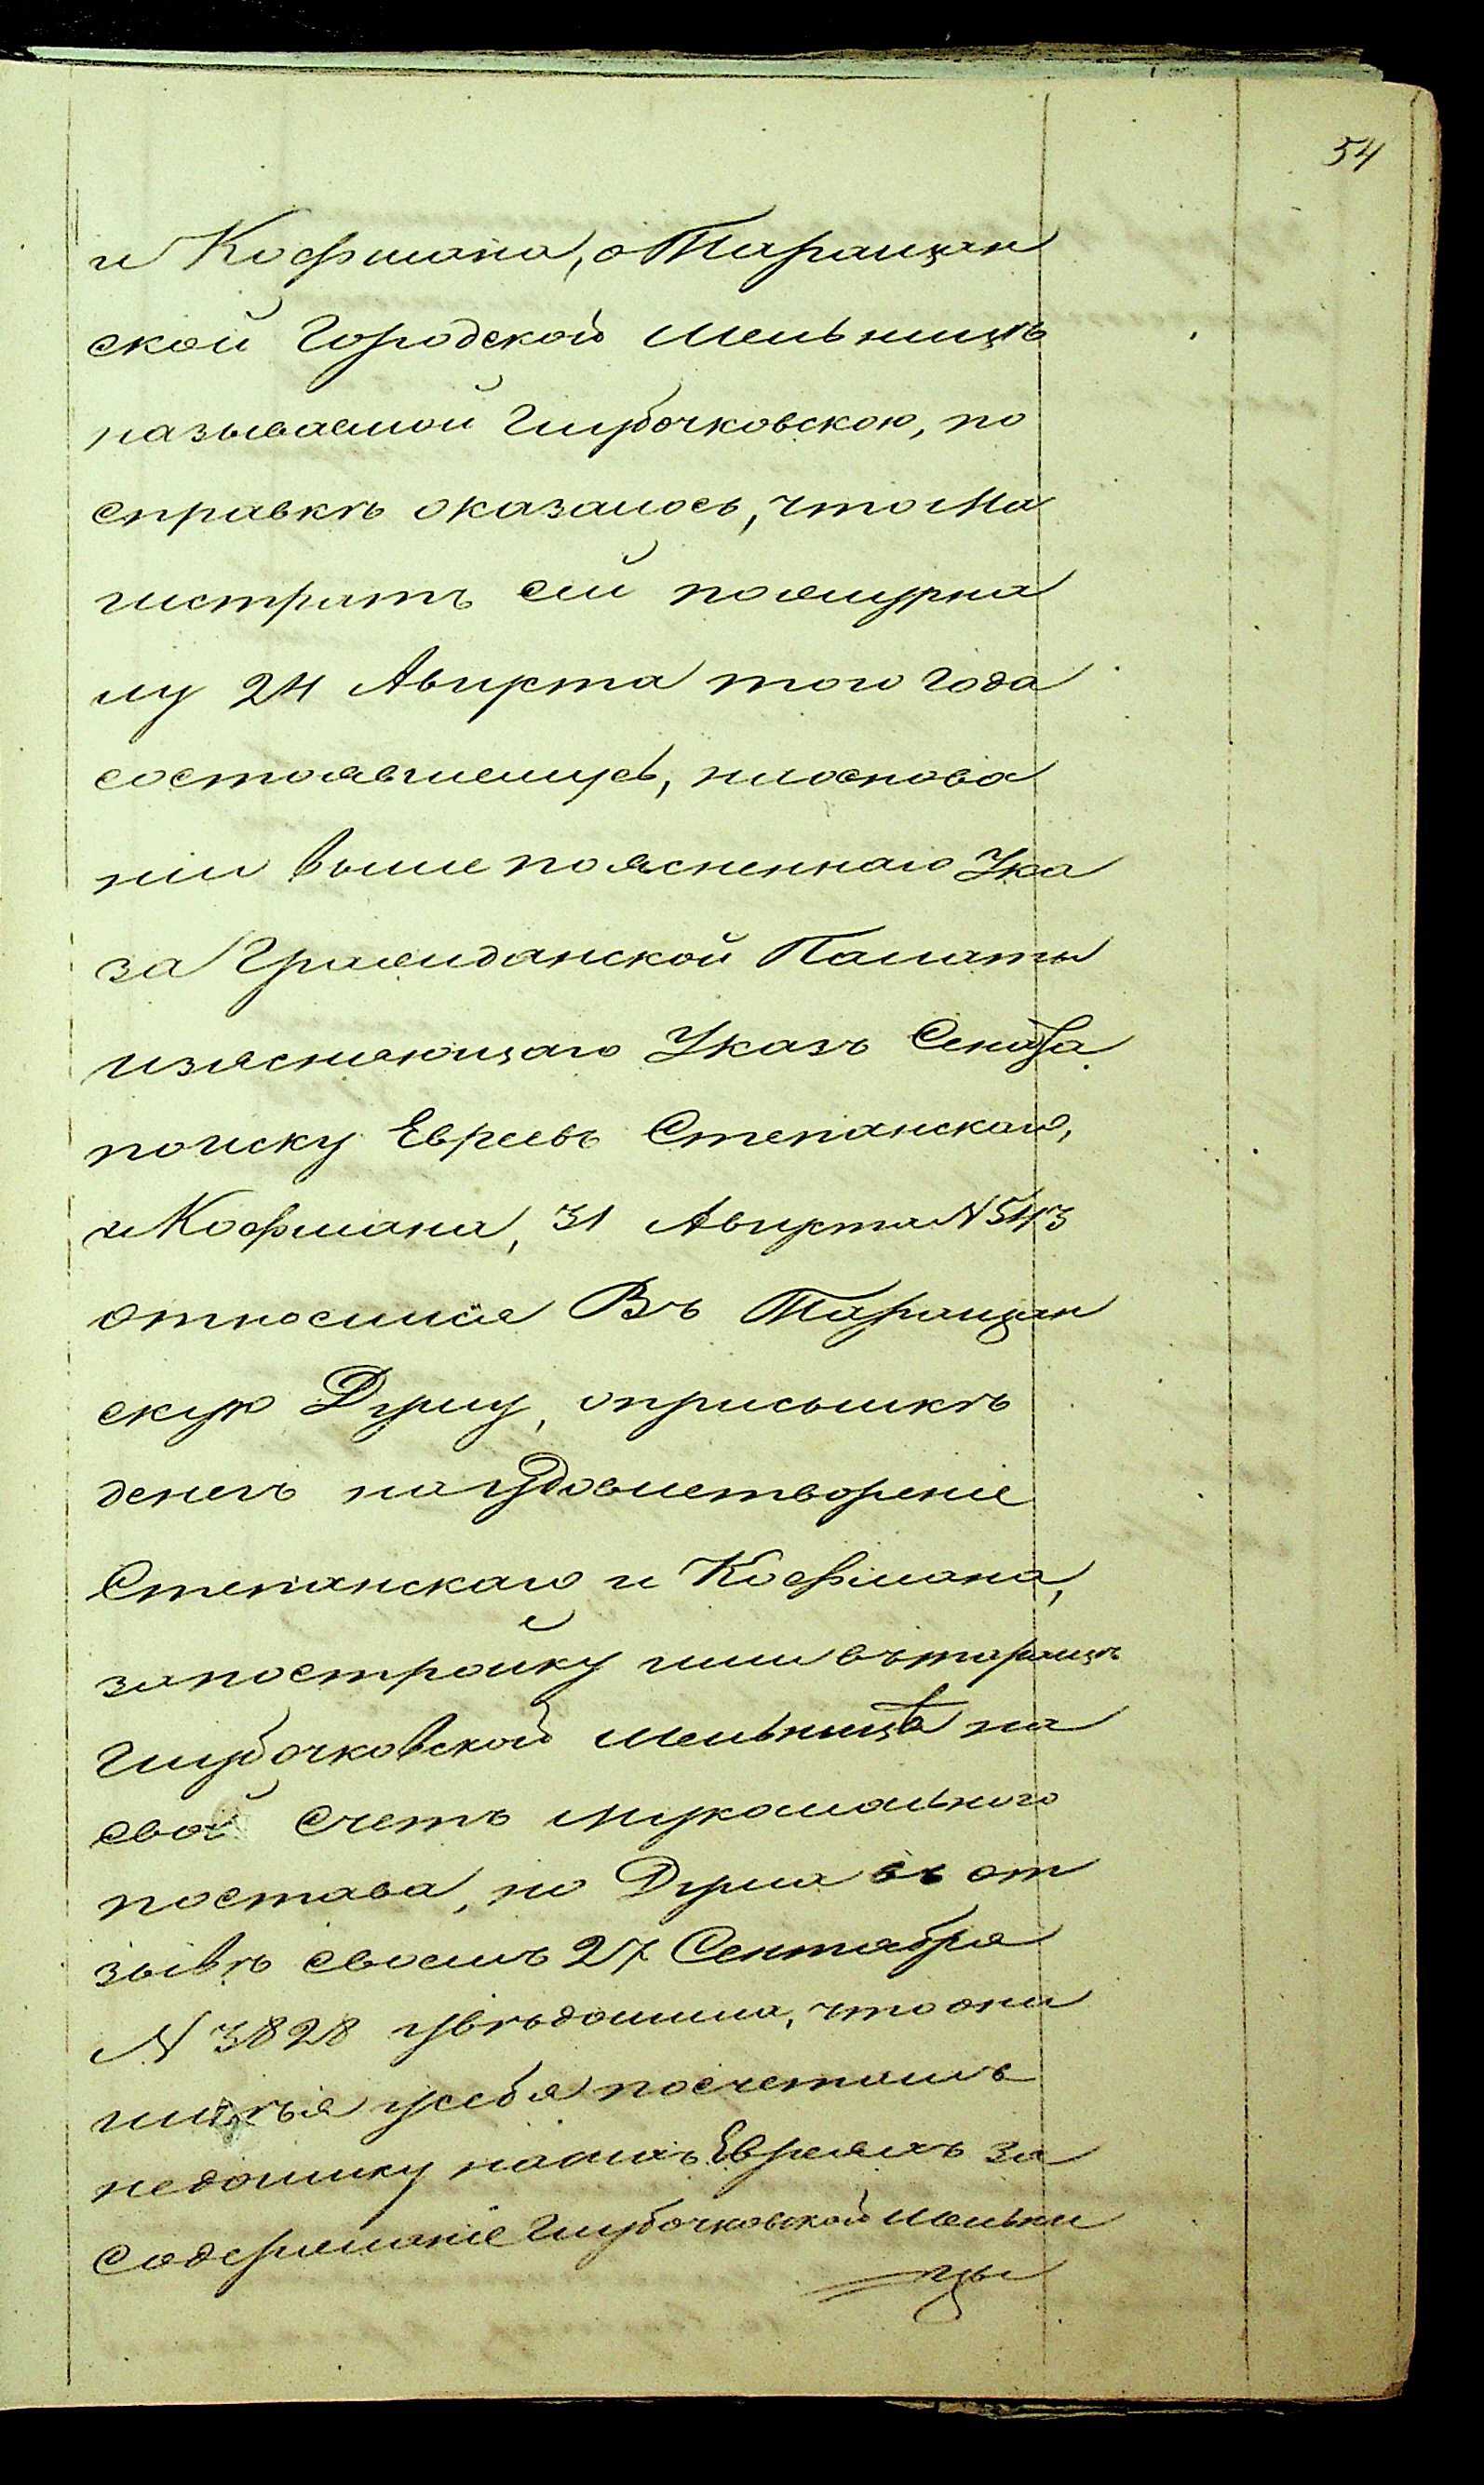 54
и Кофмана, о Таращан
ской Городской Мельницѣ
называемой Глубочковскою, по
справкѣ оказалось, что Ма
гистратъ сей по журна
лу 24 Августа того года
состоявшемусь, на основа
ніи выше поясненнаго Ука
за Гражданской Палаты
изясняющаго Указъ Сената
по иску Евреевъ Степанскаго,
и Кофмана, 31 Августа N 543
относился Въ Таращан
скую Думу, о присылкѣ
денегъ на удовлетвореніе
Степанскаго и Кофмана,
за постройку ими въ таращ
глубочковской мельницѣ на
свой счетъ мукомольного
постава, но Дума въ от
зывѣ своемъ 27 Сентября
N 3828 увѣдомила, что она
имѣя у себя по счетамъ
недоимку на сихъ Евреяхъ за
Содержаніе Глубочковской мельни
цы